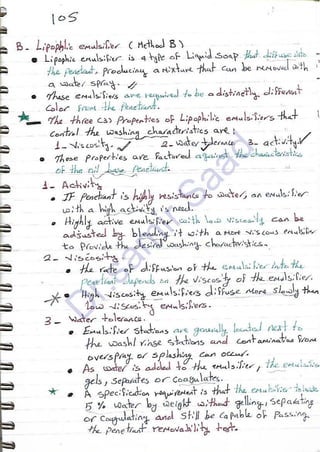 105
B- Lipophlic emulsifier (Method B)
• Lipophic emulsifier is a type of Liquid Soap that diffuse into
the penetrant, Producing a mixture that can be removed with
a water spray.
• These emulsifiers are required to be a distinctly different
Color from the Penetrant.
• The three (3) Properties of Lipophilic emulsifiers that
Control the washing characteristics are:
1- Viscosity. 2- Water tolerance 3- activity
• These Properties are factored against the characteristics
of the oil base Penetrant.
1- Activity
• IF Penetrant is highly resistance to water, an emulsifier
with a high activity is need.
• Highly active emulsifier with low viscosity can be
adjusted by blending it with a more viscous emulsifier
to Provide the desired washing characteristics.
2- Viscosity
• the rate of diffusion of the emulsifier into the
penetrant depends on the viscosity of the emulsifier.
• High viscosity emulsifiers diffuse more slowly than
low viscosity emulsifiers.
3- Water tolerance.
• Emulsifier stations are generally located next to
the wash/rinse stations and contamination from
overspray or splashing can occur.
• As water is added to the emulsifier, the emulsifier
gels, separates or coagulates.
• A specification requirement is that the emulsifier tolerate
5 % water by weight without gelling, separating
or Coagulating and still be capable of Passing
the penetrant removability test.